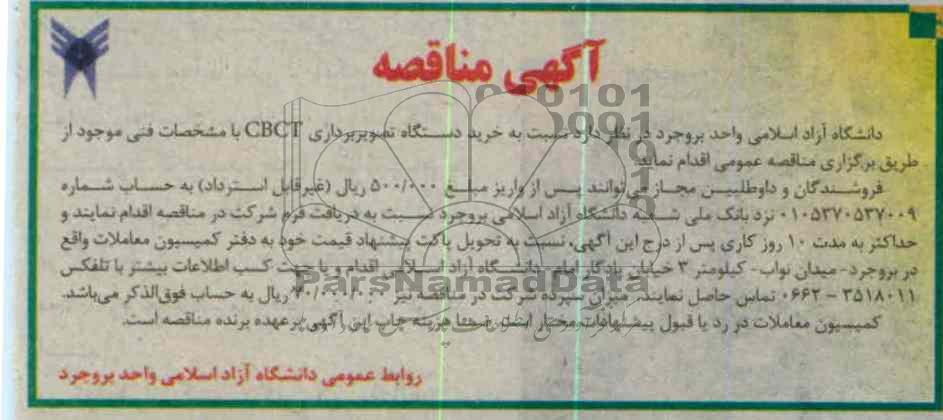 آگهی مناقصه
دانشگاه آزاد اسلامی واحد بروجرد در نظر دارد نسبت به خرید دستگاه تصویربرداری CBCT با مشخصات فنی موجود از
طریق برگزاری مناقصه عمومی اقدام نماید.
فروشندگان و داوطلبین مجاز می‌توانند پس از واریز مبلغ ۵۰۰/۰۰۰ ریال (غیرقابل استرداد) به حساب شماره
۰۱۰۵۳۷۰۵۳۷۰۰۹ نزد بانک ملی شعبه دانشگاه آزاد اسلامی بروجرد نسبت به دریافت فرم شرکت در مناقصه اقدام نمایند و
حداکثر به مدت ۱۰ روز کاری پس از درج این آگهی، نسبت به تحویل پاکت پیشنهاد قیمت خود به دفتر کمیسیون معاملات واقع
در بروجرد - میدان نواب - کیلومتر ۳ خیابان یادگار امام دانشگاه آزاد اسلامی اقدام و یا جهت کسب اطلاعات بیشتر با تلفکس
۳۵۱۸۰۱۱ - ۰۶۶۲ تماس حاصل نمایند. میزان سپرده شرکت در مناقصه نیز ریال به حساب فوق‌الذکر می‌باشد.
کمیسیون معاملات در رد یا قبول پیشنهادات مختار است. ضمنا هزینه چاپ این آگهی برعهده برنده مناقصه است.
روابط عمومی دانشگاه آزاد اسلامی واحد بروجرد
ParsNamadData